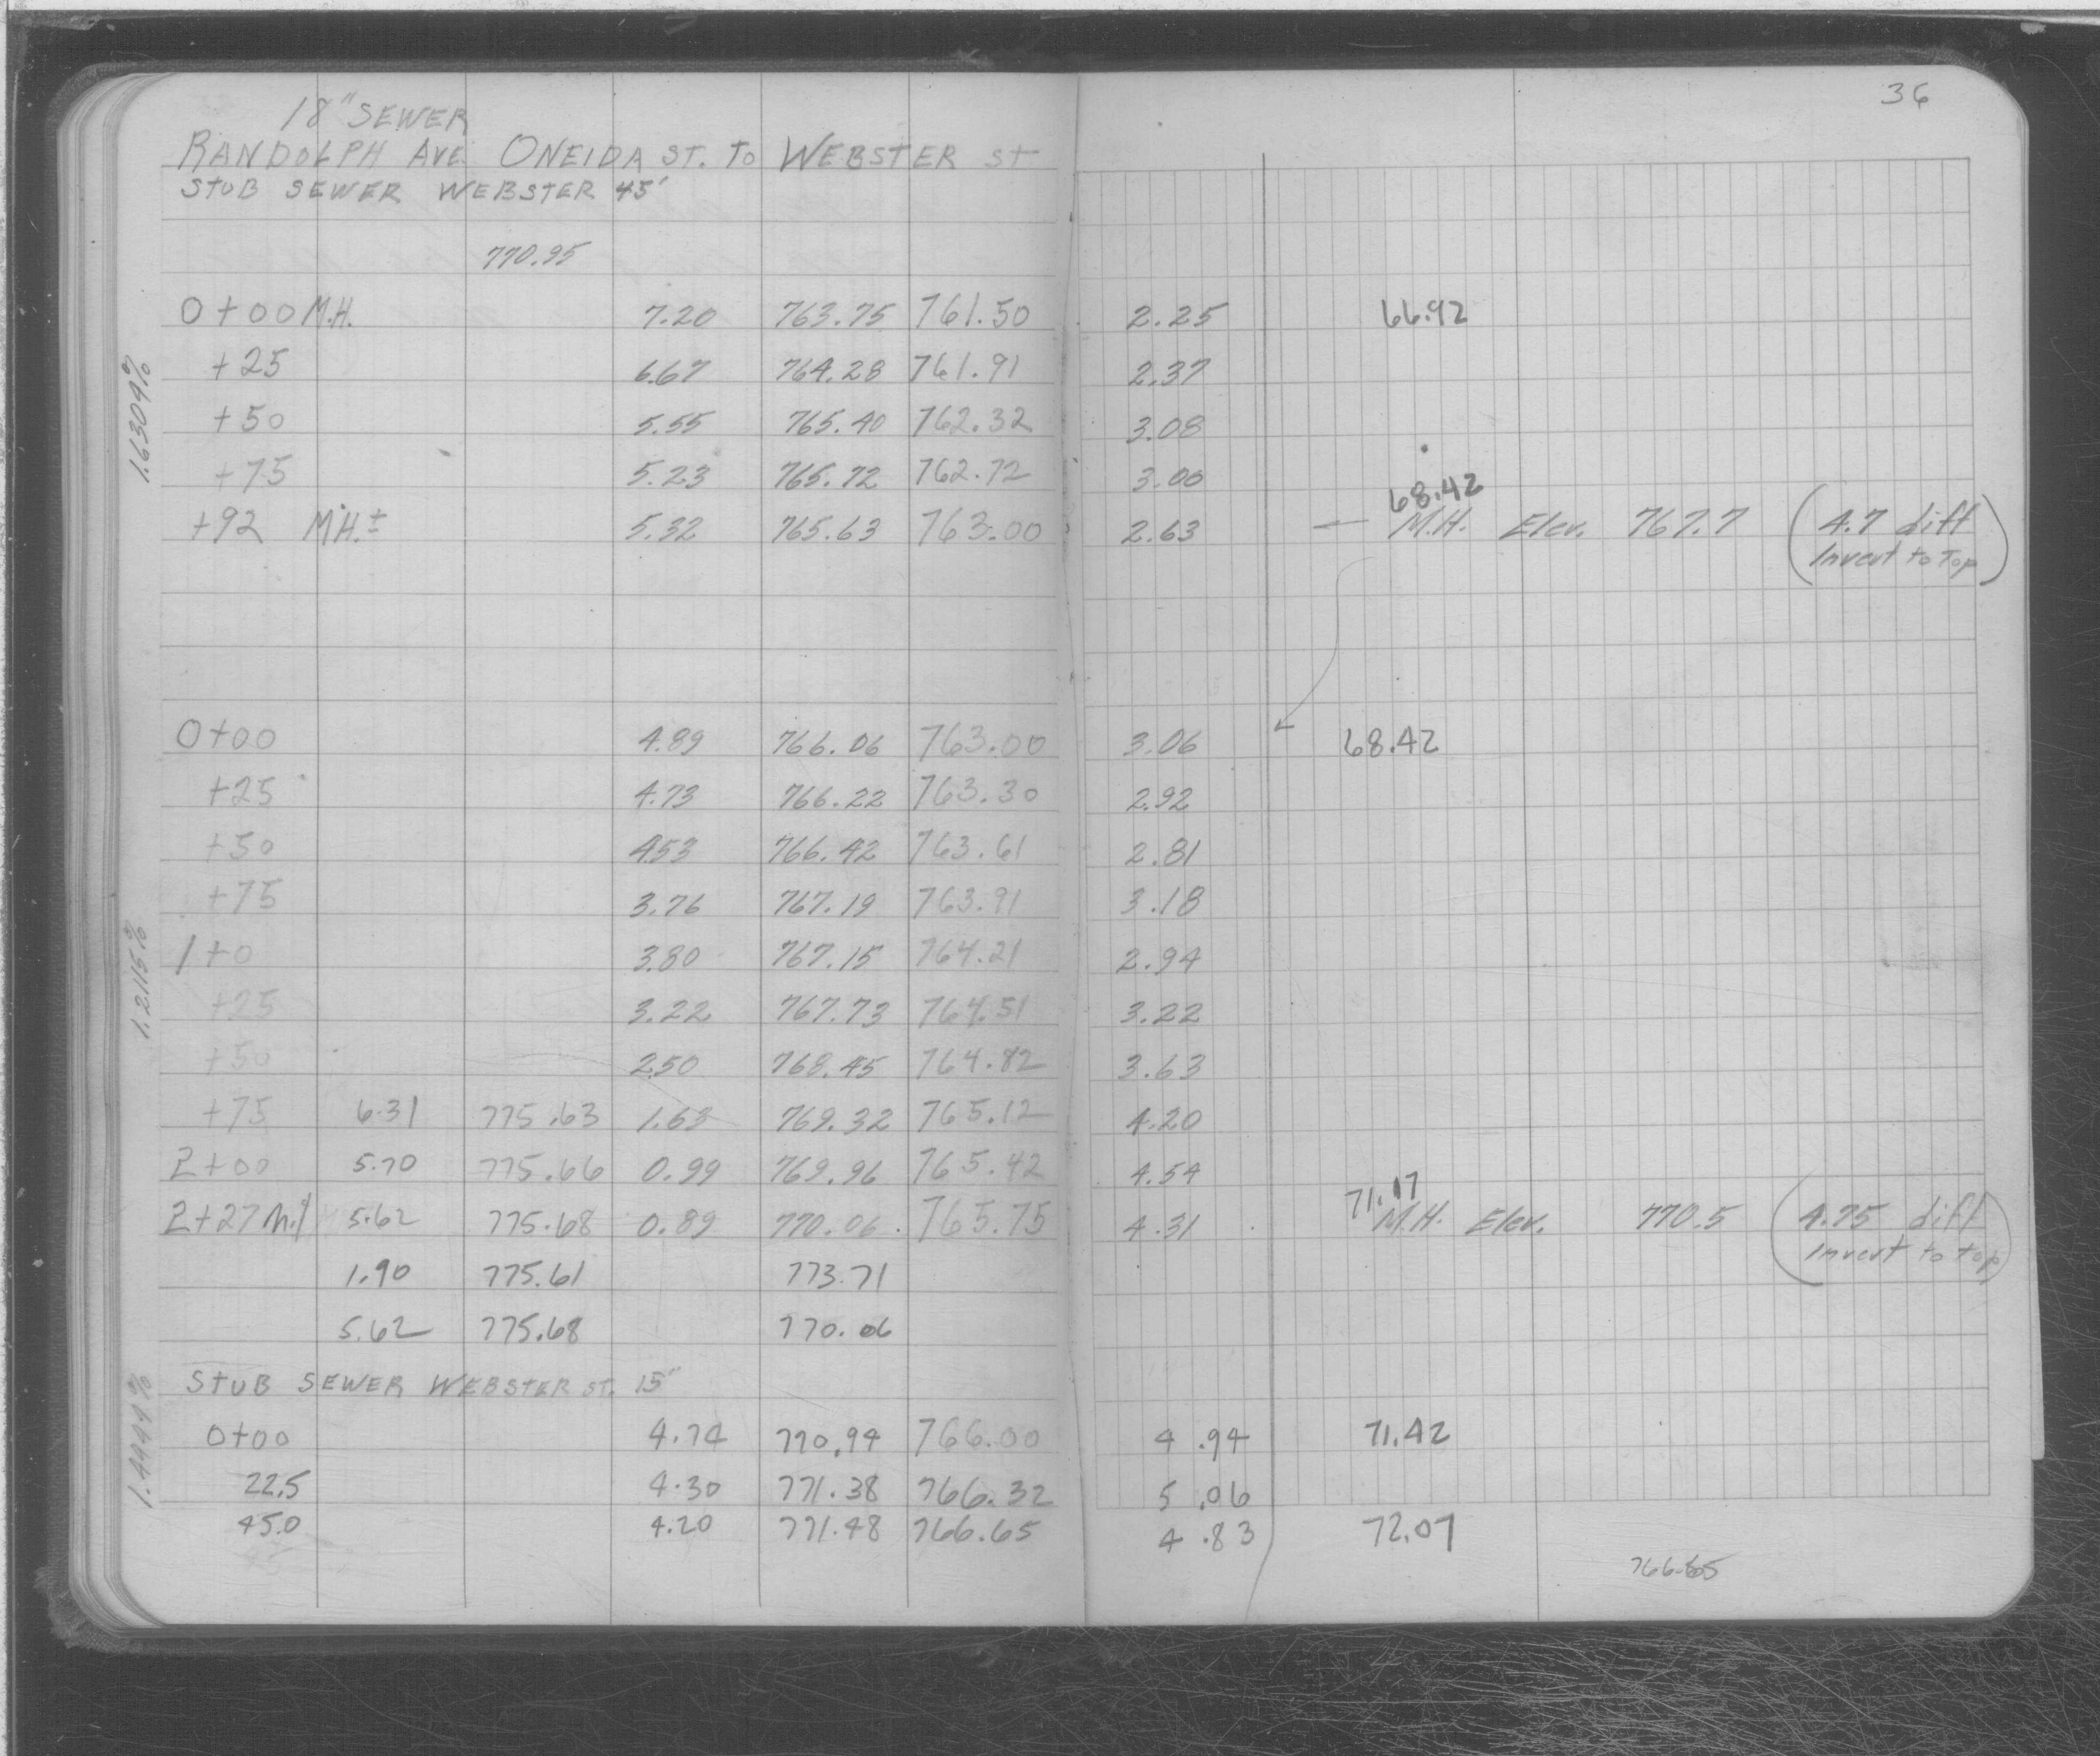 36
18" SEWER
RANDOLPH AVE. ONEIDA ST. TO WEBSTER ST
STUB SEWER WEBSTER 45'
770.95
1.6304%
0+00 M.H. 7.20 763.75 761.50 2.25 66.92
+25 6.67 764.28 761.91 2.37
+50 5.55 765.40 762.32 3.08
+75 5.23 765.72 762.72 3.00
68.42
+92 M.H.± 5.32 765.63 763.00 2.63 — M.H. Elev. 767.7 (4.7 diff
Invert to Top)
0+00 4.89 766.06 763.00 3.06 68.42
+25 4.73 766.22 763.30 2.92
+50 4.53 766.42 763.61 2.81
+75 3.76 767.19 763.91 3.18
1.2115%
1+0 3.80 767.15 764.21 2.94
+25 3.22 767.73 764.51 3.22
+50 2.50 768.45 764.82 3.63
+75 6.31 775.63 1.63 769.32 765.12 4.20
2+00 5.70 775.66 0.99 769.96 765.42 4.54
71.17
2+27 M.H 5.62 775.68 0.89 770.06 765.75 4.31 M.H. Elev. 770.5 (4.75 diff
Invert to top)
1.90 775.61 773.71
5.62 775.68 770.06
STUB SEWER WEBSTER ST. 15"
1.4444%
0+00 4.74 770.94 766.00 4.94 71.42
22.5 4.30 771.38 766.32 5.06
45.0 4.20 771.48 766.65 4.83 72.07
766.65